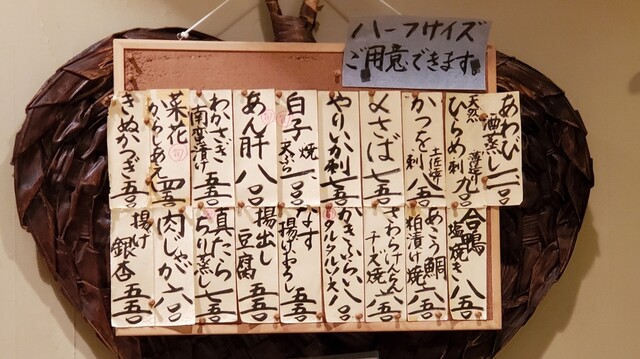 ハーフサイズ
ご用意できます
あわび
酒蒸し
天然
ひらめ刺
薄造り
九〇〇
かつを
土佐焼
刺
八五〇
〆さば
七五〇
やりいか刺
七五〇
白子
焼
天ぷら
あん肝
八〇〇
わかさぎ
南蛮漬け
五五〇
菜花
旬
からしあえ
四五〇
きぬかつぎ
五五〇
合鴨
塩焼き
八五〇
あこう鯛
粕漬け焼
八五〇
さわらけんちん
チーズ焼
八五〇
かきふらい
タルタルソース
八〇〇
なす
揚げおろし
五五〇
揚出し
豆腐
五五〇
真たら
ちり蒸し
七五〇
肉じゃが
六〇〇
揚げ
銀杏
五五〇